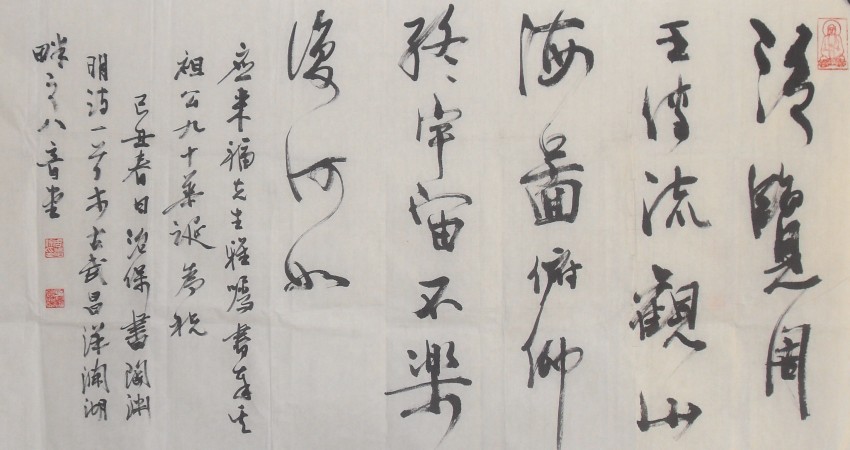 泛覽周
王傳流觀山
海圖俯仰
終宇宙不樂
復何如
應來福先生雅囑書奉其
祖公九十華誕為祝
己丑春日治保書陶淵
明詩一首於古武昌洋瀾湖
畔之八音堂